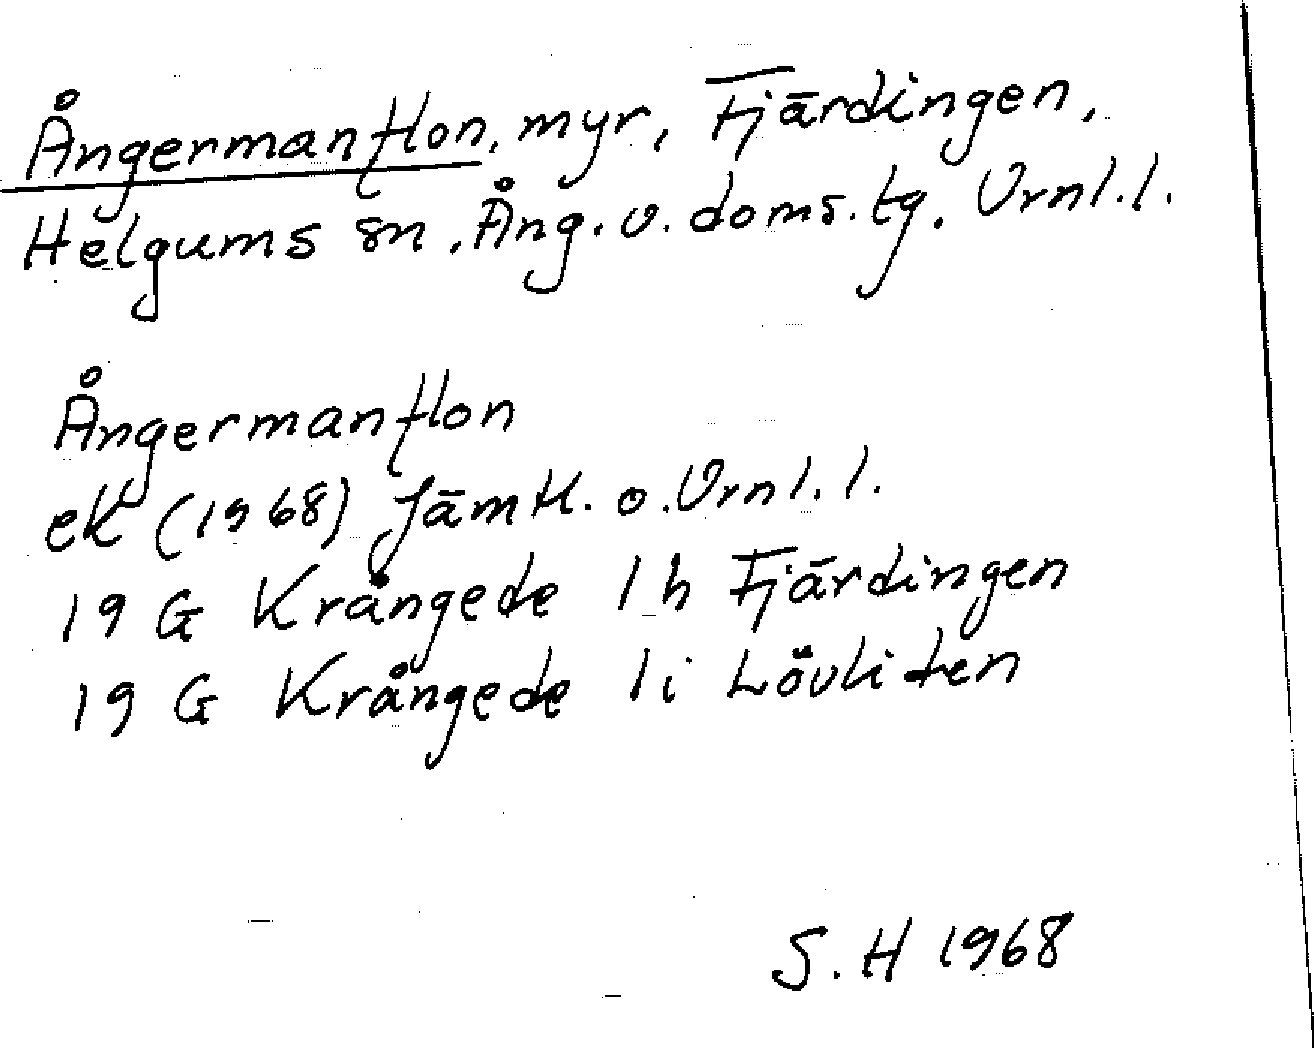 Ångermanflon, myr, Fjärdingen,
Helgums sn. Ång. v. doms. tg. Vrnl. l.
Ångermanflon
ek (1968) Jämtl. o. Vrnl. l.
19 G Krångede 1 h Fjärdingen
19 G Krångede 1 i Lövliden
S. H 1968